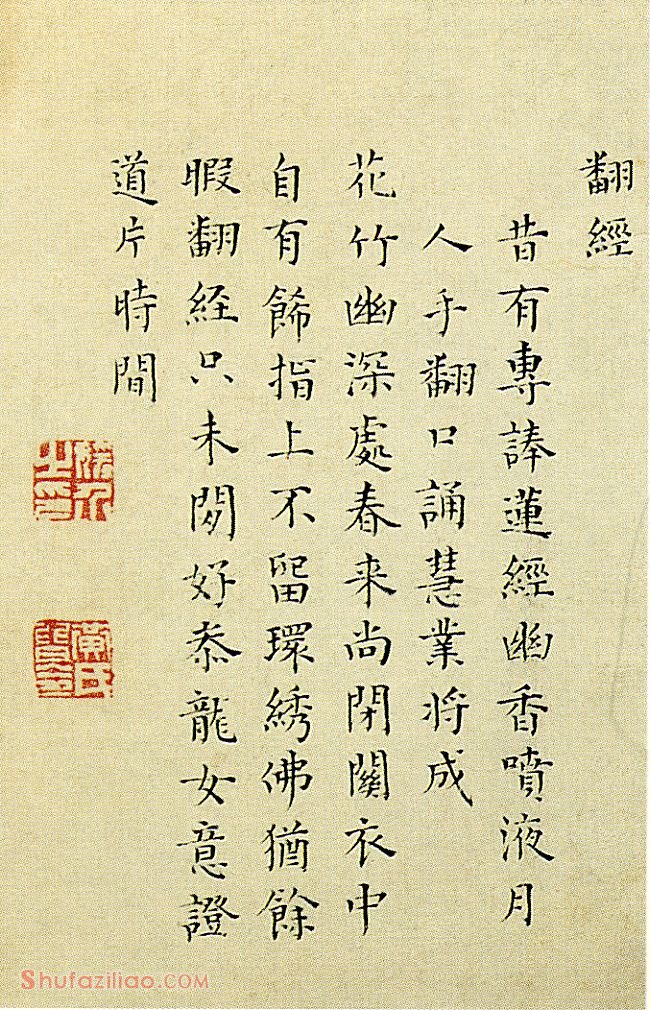 翻經
昔有專蓮經幽香噴液月
人手翻口誦慧業将成
花竹幽深處春来尚閉關衣中
自有餙指上不留環綉佛猶餘
暇翻経只未好叅龍女意證
道片時間
Shufaziliao.COM